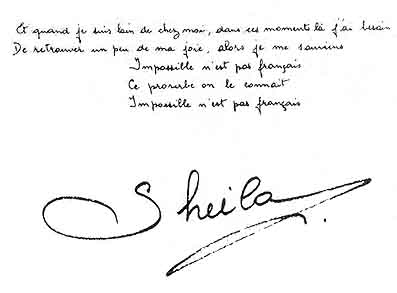 Et quand je suis loin de chez moi, dans ces moments là j'ai besoin
De retrouver un peu de ma joie, alors je me souviens
Impossible n'est pas français
Ce proverbe on le connaît
Impossible n'est pas français
Sheila